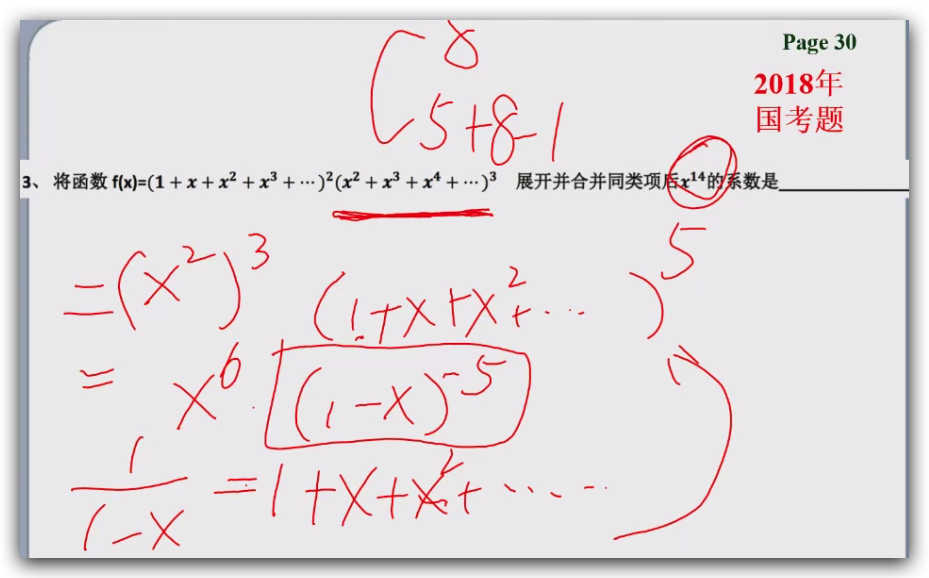 Page 30
2018年
国考题
C 8
5+8-1
3、将函数 f(x)=(1 + x + x² + x³ + ⋯)²(x² + x³ + x⁴ + ⋯)³ 展开并合并同类项后x¹⁴的系数是__________
=(x²)³ (1+x+x²+...)⁵
= x⁶·(1-x)⁻⁵
1/(1-x) = 1+x+x²+......